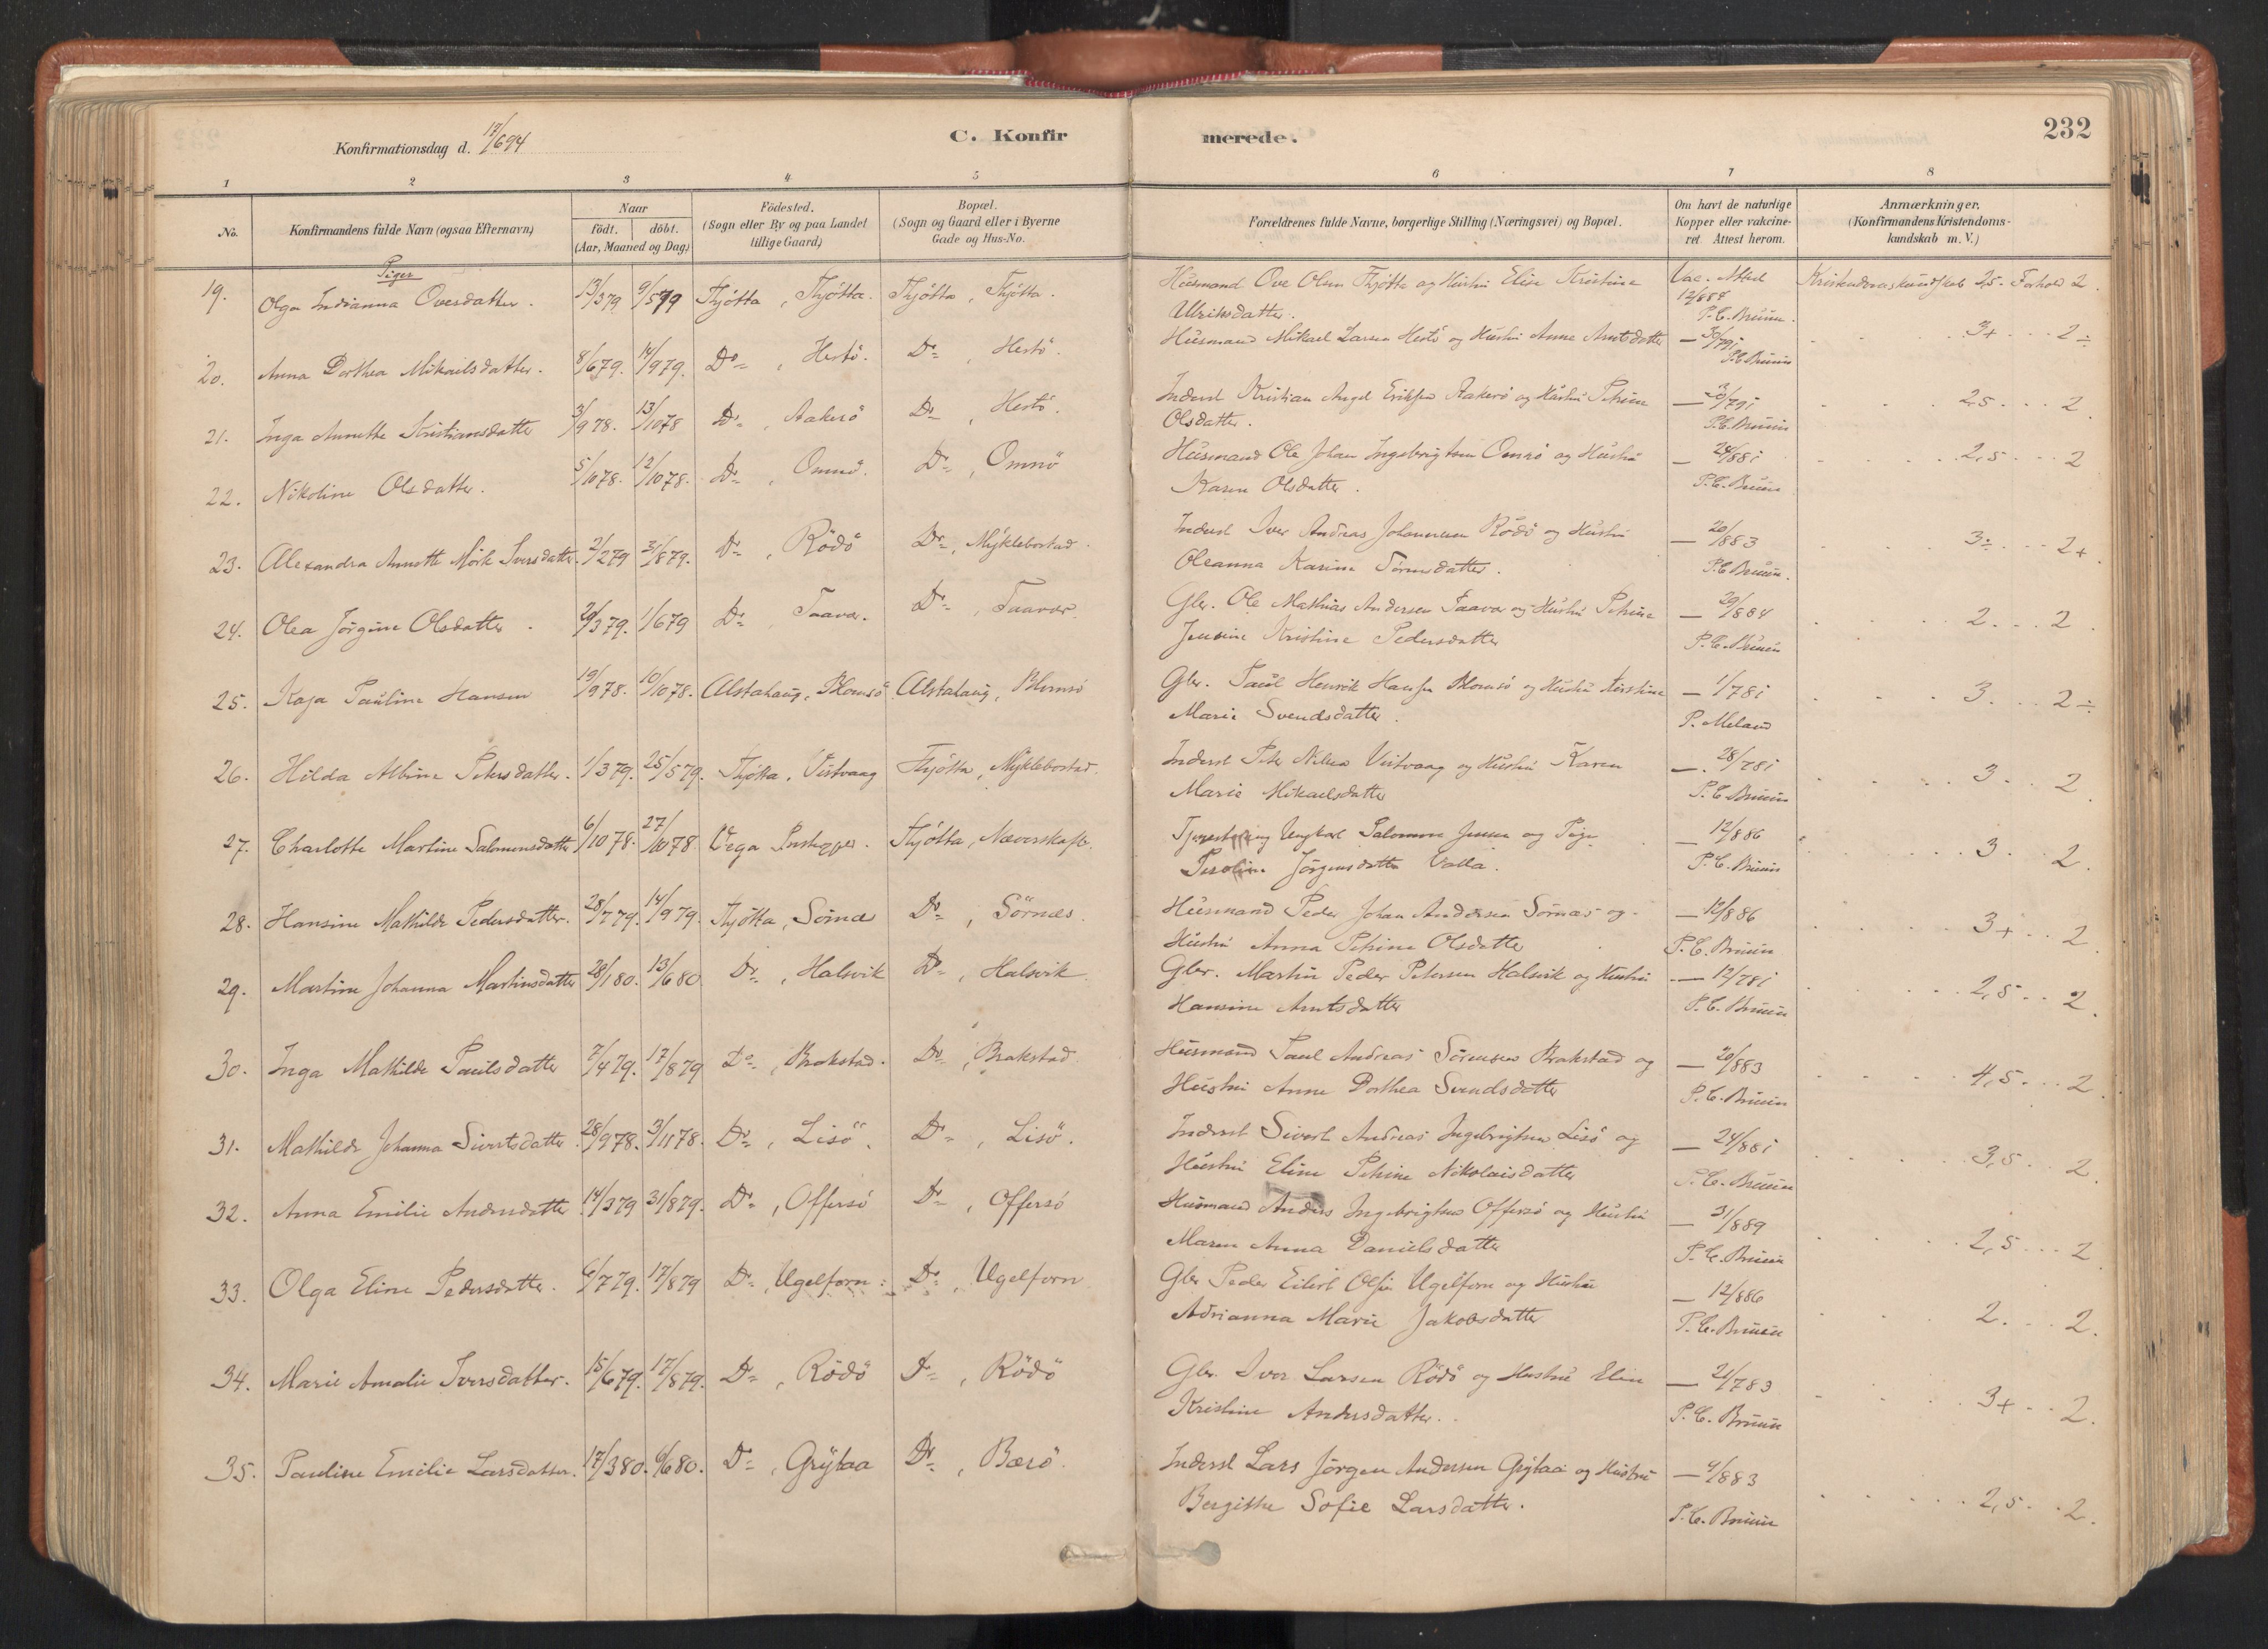 Konfirmationsdag d. 17/6 94
C. Konfir
merede.
232
1 2 3 4 5 6 7 8
No.
Konfirmandens fulde Navn (ogsaa Efternavn)
Naar
födt. döbt.
(Aar, Maaned og Dag)
Födested.
(Sogn eller By og paa Landet
tillige Gaard)
Bopæl.
(Sogn og Gaard eller i Byerne
Gade og Hus-No.
Forældrenes fulde Navne, borgerlige Stilling (Næringsvei) og Bopæl.
Om havt de naturlige
Kopper eller vakcine-
ret. Attest herom.
Anmærkninger.
(Konfirmandens Kristendoms-
kundskab m. V.)
Piger
19. Olga Indianna Ovesdatter. 13/3 79 9/5 79 Thjötta, Thjötta. Thjötta, Thjötta. Husmand Ove Olsen Thjötta og Hustru Elise Kristine Vac. Attest Kristendomskundskab 2,5. Forhold 2.
Ulriksdatter. 12/8 87 P.C. Bruun.
20. Anna Dorthea Mikaelsdatter. 8/6 79. 14/9 79. Do, Hestö. Do, Hestö. Husmand Mikael Larsen Hestö og Hustru Anne Arntsdatter — 30/7 91 3+ 2÷
P.C. Bruun
21. Inga Annette Kristiansdatter 3/9 78. 13/10 78 Do, Aakerö Do, Hestö. Inderst Kristian Angel Eriksen Aakerö og Hustru Petrine — 30/7 91 2,5 2.
Olsdatter. P.C. Bruun
22. Nikoline Olsdatter. 5/10 78. 12/10 78. Do, Omnö. Do, Omnö Husmand Ole Johan Ingebrigtsen Omnö og Hustru — 24/8 81 2,5 2
Karen Olsdatter. P.C. Bruun
23. Alexandra Annette Mörk Iversdatter. 2/2 79 31/8 79. Do, Rödö Do, Myklebostad. Inderst Iver Andreas Johannesen Rödö og Hustru — 20/8 83 3÷ 2+
Oleanna Karine Sörensdatter. P.C. Bruun.
24. Olea Jörgine Olsdatter. 20/3 79. 1/6 79 Do, Taavær. Do, Taavær. Gbr. Ole Mathias Andersen Taavær og Hustru Petrine — 29/8 84 2 2.
Jensine Kristine Pedersdatter P.C. Bruun
25. Kaja Pauline Hansen 19/9 78. 10/10 78. Alstahaug, Blomsö Alstahaug, Blomsö Gbr. Paul Henrik Hansen Blomsö og Hustru Kirstine — 1/7 81 3. 2÷
Marie Svendsdatter. P. Meland
26. Hilda Albine Petersdatter. 1/3 79. 25/5 79. Thjötta, Vistvaag Thjötta, Myklebostad. Inderst Peter Nilsen Vistvaag og Hustru Karen — 28/7 81 3 2.
Marie Mikaelsdatter P.C. Bruun
27. Charlotte Martine Salomonsdatter 6/10 78. 27/10 78 Vega Thjötta, Næverskaft. Ungkarl Salomon Jensen og Pige — 12/8 86 3. 2.
Jörgensdatter Valla. P.C. Bruun
28. Hansine Mathilde Pedersdatter. 28/7 79. 14/9 79. Thjötta, Sörnæs Do, Sörnæs. Husmand Peder Johan Andersen Sörnæs og — 12/8 86 3+ 2
Hustru Anna Petrine Olsdatter P.C. Bruun
29. Martine Johanna Martinsdatter 28/1 80. 13/6 80 Do, Halsvik Do, Halsvik. Gbr. Martin Peder Petersen Halsvik og Hustru — 12/7 81 2,5 2.
Hansine Arntsdatter P.C. Bruun
30. Inga Mathilde Paulsdatter 7/4 79. 17/8 79 Do, Brakstad. Do, Brakstad. Husmand Paul Andreas Sörensen Brakstad og — 20/8 83 4,5 2.
Hustru Anne Dorthea Svendsdatter P.C. Bruun
31. Mathilde Johanna Sivertsdatter. 28/9 78. 3/11 78. Do, Lisö. Do, Lisö. Inderst Sivert Andreas Ingebrigtsen Lisö og — 24/8 81 3,5 2.
Hustru Eline Petrine Nikolaisdatter P.C. Bruun
32. Anna Emilie Andersdatter 14/3 79 31/8 79. Do, Offersö Do, Offersö Husmand Anders Ingebrigtsen Offersö og Hustru — 31/8 89 2,5 2
Maren Anna Danielsdatter P.C. Bruun
33. Olga Eline Pedersdatter. 6/7 79. 17/8 79 Do, Ugelforn. Do, Ugelforn Gbr Peder Eilert Olsen Ugelforn og Hustru — 12/8 86 2. 2.
Adrianna Marie Jakobsdatter P.C. Bruun
34. Marie Amalie Iversdatter. 15/6 79. 17/8 79. Do, Rödö Do, Rödö Gbr. Iver Larsen Rödö og Hustru Elen — 21/7 83 3+ 2.
Kristine Andersdatter. P.C. Bruun
35. Pauline Emilie Larsdatter. 17/3 80. 6/6 80. Do, Grytaa Do, Bærö. Inderst Lars Jörgen Andersen Grytaa og Hustru — 9/8 83 2,5 2.
Bergithe Sofie Larsdatter. P.C. Bruun